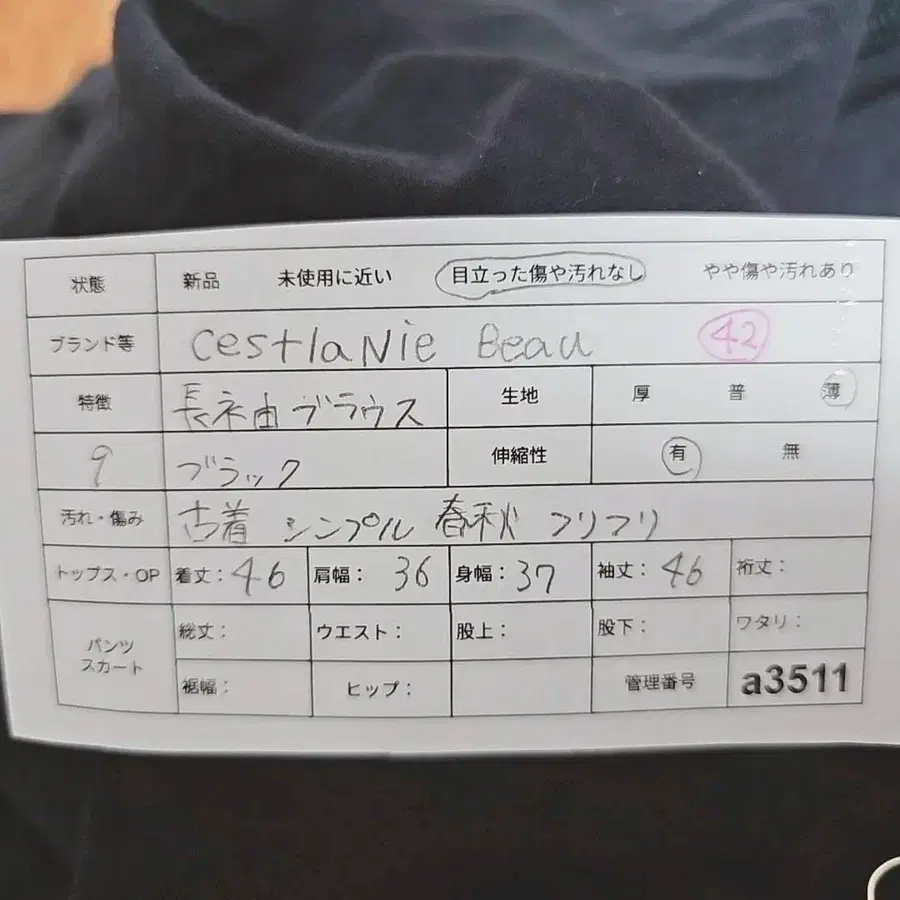 状態 新品 未使用に近い 目立った傷や汚れなし やや傷や汚れあり
ブランド等 CestlaNie Beau 42
特徴 長ネ由ブラウス 生地 厚 普 薄
9 ブラック 伸縮性 有 無
汚れ・傷み 古着 シンプル 春秋 フリフリ
トップス・OP 着丈:46 肩幅:36 身幅:37 袖丈:46 裄丈:
パンツ スカート 総丈: ウエスト: 股上: 股下: ワタリ:
裾幅: ヒップ: 管理番号 a3511